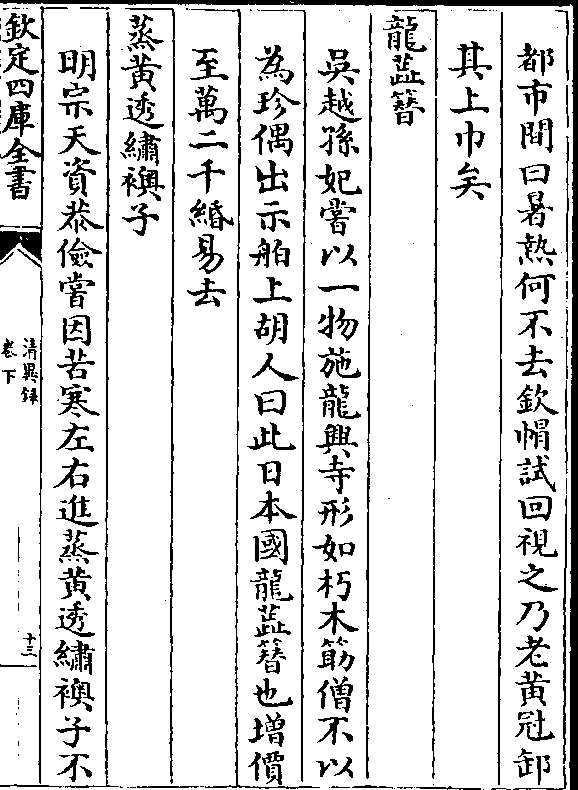 都市間曰暑熱何不去欽㡌試回視之乃老黄冠卸
其上巾矣
龍蕋簪
吳越孫妃嘗以一物施龍興寺形如朽木筯僧不以
為珍偶出示舶上胡人曰此日本國龍蕋簪也增價
至萬二千緡易去
蒸黄透繡襖子
明宗天資恭儉嘗因苦寒左右進蒸黄透繡襖子不
欽定四庫全書
清異錄
卷下
十三